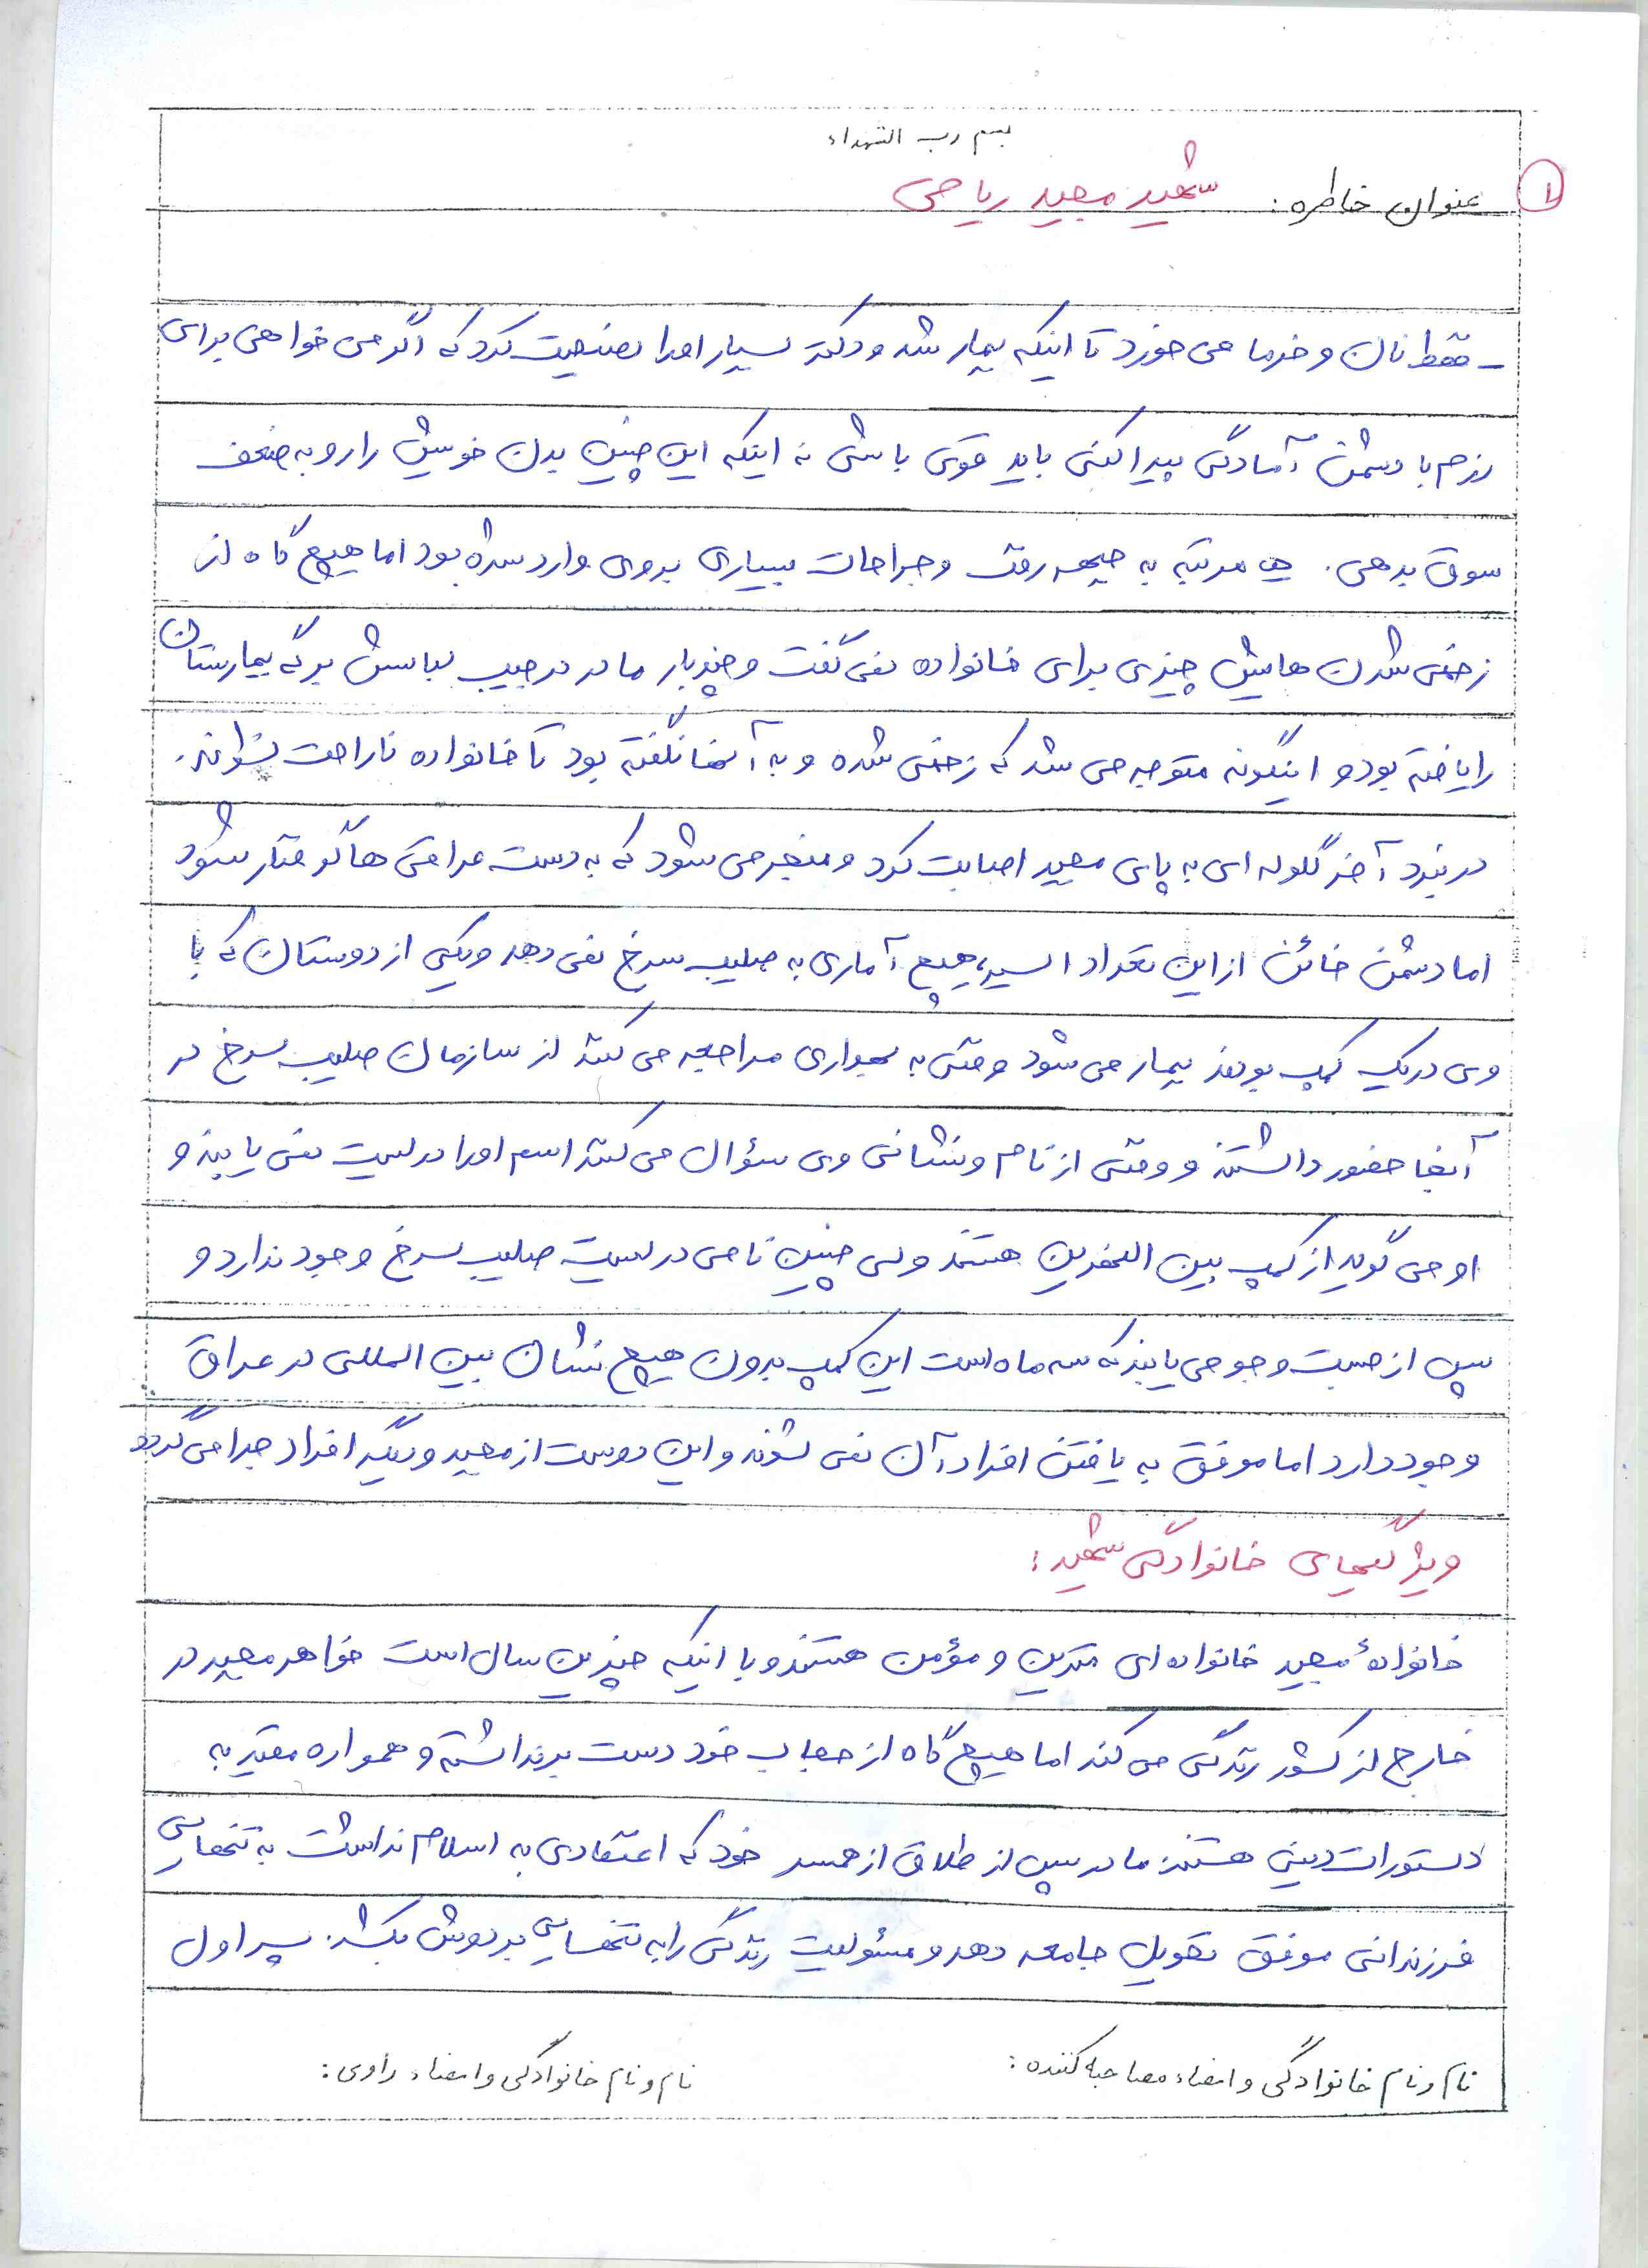 بسم رب الشهداء
۱ عنوان خاطره: شهید مجید ریاحی
- فقط نان و خرما می خورد تا اینکه بیمار شد و دکتر بسیار او را نصیحت کرد که اگر می خواهی برای
رزم با دشمن آمادگی پیدا کنی باید قوی باشی نه اینکه این چنین بدن خویش را رو به ضعف
سوق بدهی. مرتبه به جبهه رفت و جراحات بسیاری بروی وارد شده بود اما هیچ گاه از
زخمی شدن هایش چیزی برای خانواده نمی گفت و چند بار مادر در جیب لباسش برگه بیمارستان
را یافته بود و اینگونه متوجه می شد که زخمی شده و به آنها نگفته بود تا خانواده ناراحت نشوند.
در نبرد آخر گلوله ای به پای مجید اصابت کرد و منجر می شود که به دست عراقی ها گرفتار شود
اما دشمن خائن از این تعداد اسیر، هیچ آماری به صلیب سرخ نمی دهد و یکی از دوستان که با
وی در یک کمپ بودند بیمار می شود وقتی به بهداری مراجعه می کند از سازمان صلیب سرخ در
آنجا حضور داشتند و وقتی از نام و نشانی وی سؤال می کنند اسم او را در لیست نمی یابند و
او می گوید از کمپ بین النهرین هستند ولی چنین نامی در لیست صلیب سرخ وجود ندارد و
پس از جست و جو می یابند که سه ماه است این کمپ بدون هیچ نشان بین المللی در عراق
وجود دارد اما موفق به یافتن افراد آن نمی شوند و این دوست از مجید و دیگر افراد جدا می گردد
ویژگیهای خانوادگی شهید:
خانوادهٔ مجید خانواده ای متدین و مؤمن هستند و با اینکه چندین سال است خواهر مجید در
خارج از کشور زندگی می کند اما هیچ گاه از حجاب خود دست برنداشته و همواره مقید به
دستورات دینی هستند. مادر پس از طلاق از همسر خود که اعتقادی به اسلام نداشت به تنهایی
فرزندانی موفق تحویل جامعه دهد و مسئولیت زندگی را به تنهایی بر دوش بکشد. پسر اول
نام و نام خانوادگی و امضاء مصاحبه کننده:
نام و نام خانوادگی و امضاء راوی: